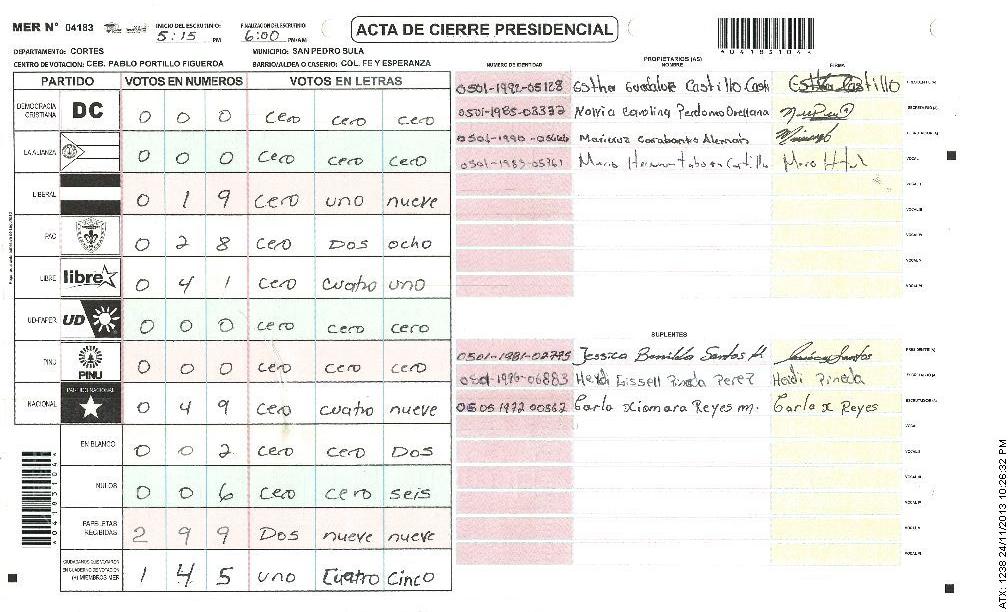 MER N° 04183 INICIO DEL ESCRUTINIO: 5:15 PM FINALIZACION DEL ESCRUTINIO: 6:00 PM/AM
ACTA DE CIERRE PRESIDENCIAL
*04183104*
DEPARTAMENTO: CORTES MUNICIPIO: SAN PEDRO SULA
CENTRO DE VOTACION: CEB. PABLO PORTILLO FIGUEROA BARRIO/ALDEA O CASERIO: COL. FE Y ESPERANZA
PARTIDO VOTOS EN NUMEROS VOTOS EN LETRAS
DEMOCRACIA CRISTIANA DC 0 0 0 cero cero cero
LA ALIANZA 0 0 0 cero cero cero
LIBERAL 0 1 9 cero uno nueve
PAC 0 2 8 cero Dos ocho
LIBRE libre 0 4 1 cero cuatro uno
UD-FAPER UD 0 0 0 cero cero cero
PINU PINU 0 0 0 cero cero cero
NACIONAL PARTIDO NACIONAL 0 4 9 cero cuatro nueve
EN BLANCO 0 0 2 cero cero Dos
NULOS 0 0 6 cero cero seis
PAPELETAS RECIBIDAS 2 9 9 Dos nueve nueve
CIUDADANOS QUE VOTARON EN CUADERNO DE VOTACION (+) MIEMBROS MER 1 4 5 uno Cuatro Cinco
*04183104*
PROPIETARIOS (AS)
NUMERO DE IDENTIDAD NOMBRE FIRMA
0501-1992-05128 Esther Guadalupe Castillo PRESIDENTE (A)
0501-1985-08332 Carolina Perdomo Orellana SECRETARIO (A)
0501-1990- Maricruz Alemán
0501-1983-05761 Mario VOCAL I
VOCAL II
VOCAL III
VOCAL IV
VOCAL V
VOCAL VI
SUPLENTES
0501-1981-02795 Jessica Santos M. PRESIDENTE (A)
0501-1996-06883 Heidi Gissell Pineda Perez Heidi Pineda SECRETARIO (A)
0505 1972 00362 Carla Xiomara Reyes m. Carla X Reyes ESCRUTADOR (A)
VOCAL I
VOCAL II
VOCAL III
VOCAL IV
VOCAL V
VOCAL VI
ATX: 1238 24/11/2013 10:26:32 PM